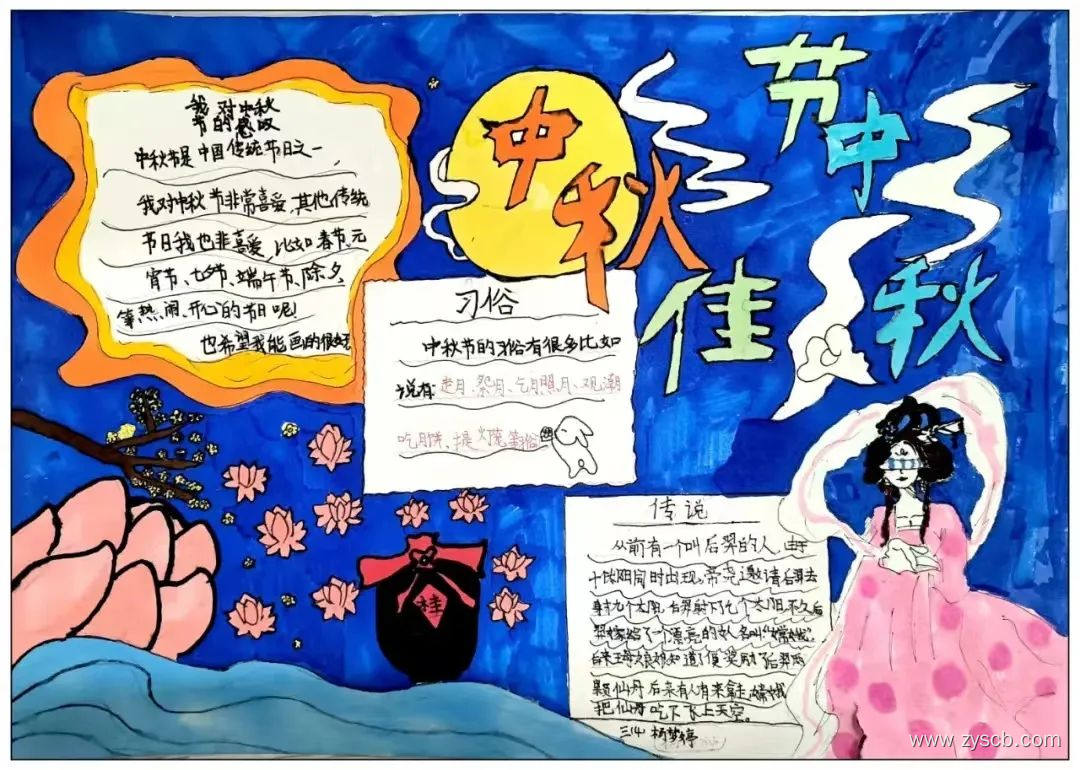 中秋佳节
中秋
我对中秋
节的感叹
中秋节是中国传统节日之一，
我对中秋节非常喜爱，其他传统
节日我也非喜爱，比如春节、元
宵节、七夕节、端午节、除夕，
等热闹、开心的节日呢！
也希望我能画的很好
习俗
中秋节的习俗有很多比如
说有：走月、祭月、乞月照月、观潮
吃月饼、提火烧等俗
桂
传说
从前有一个叫后羿的人，由于
十阳同时出现，帝尧邀请后羿去
射九个太阳，后羿射下九个太阳不久后
羿嫁给了一个漂亮的女人名叫“嫦娥”.
王母娘娘知道了便奖励了后羿两
颗仙丹后来有人来拿走，嫦娥
把仙丹吃下飞上天空。
三(4) 杨梦婷
www.zyscb.com